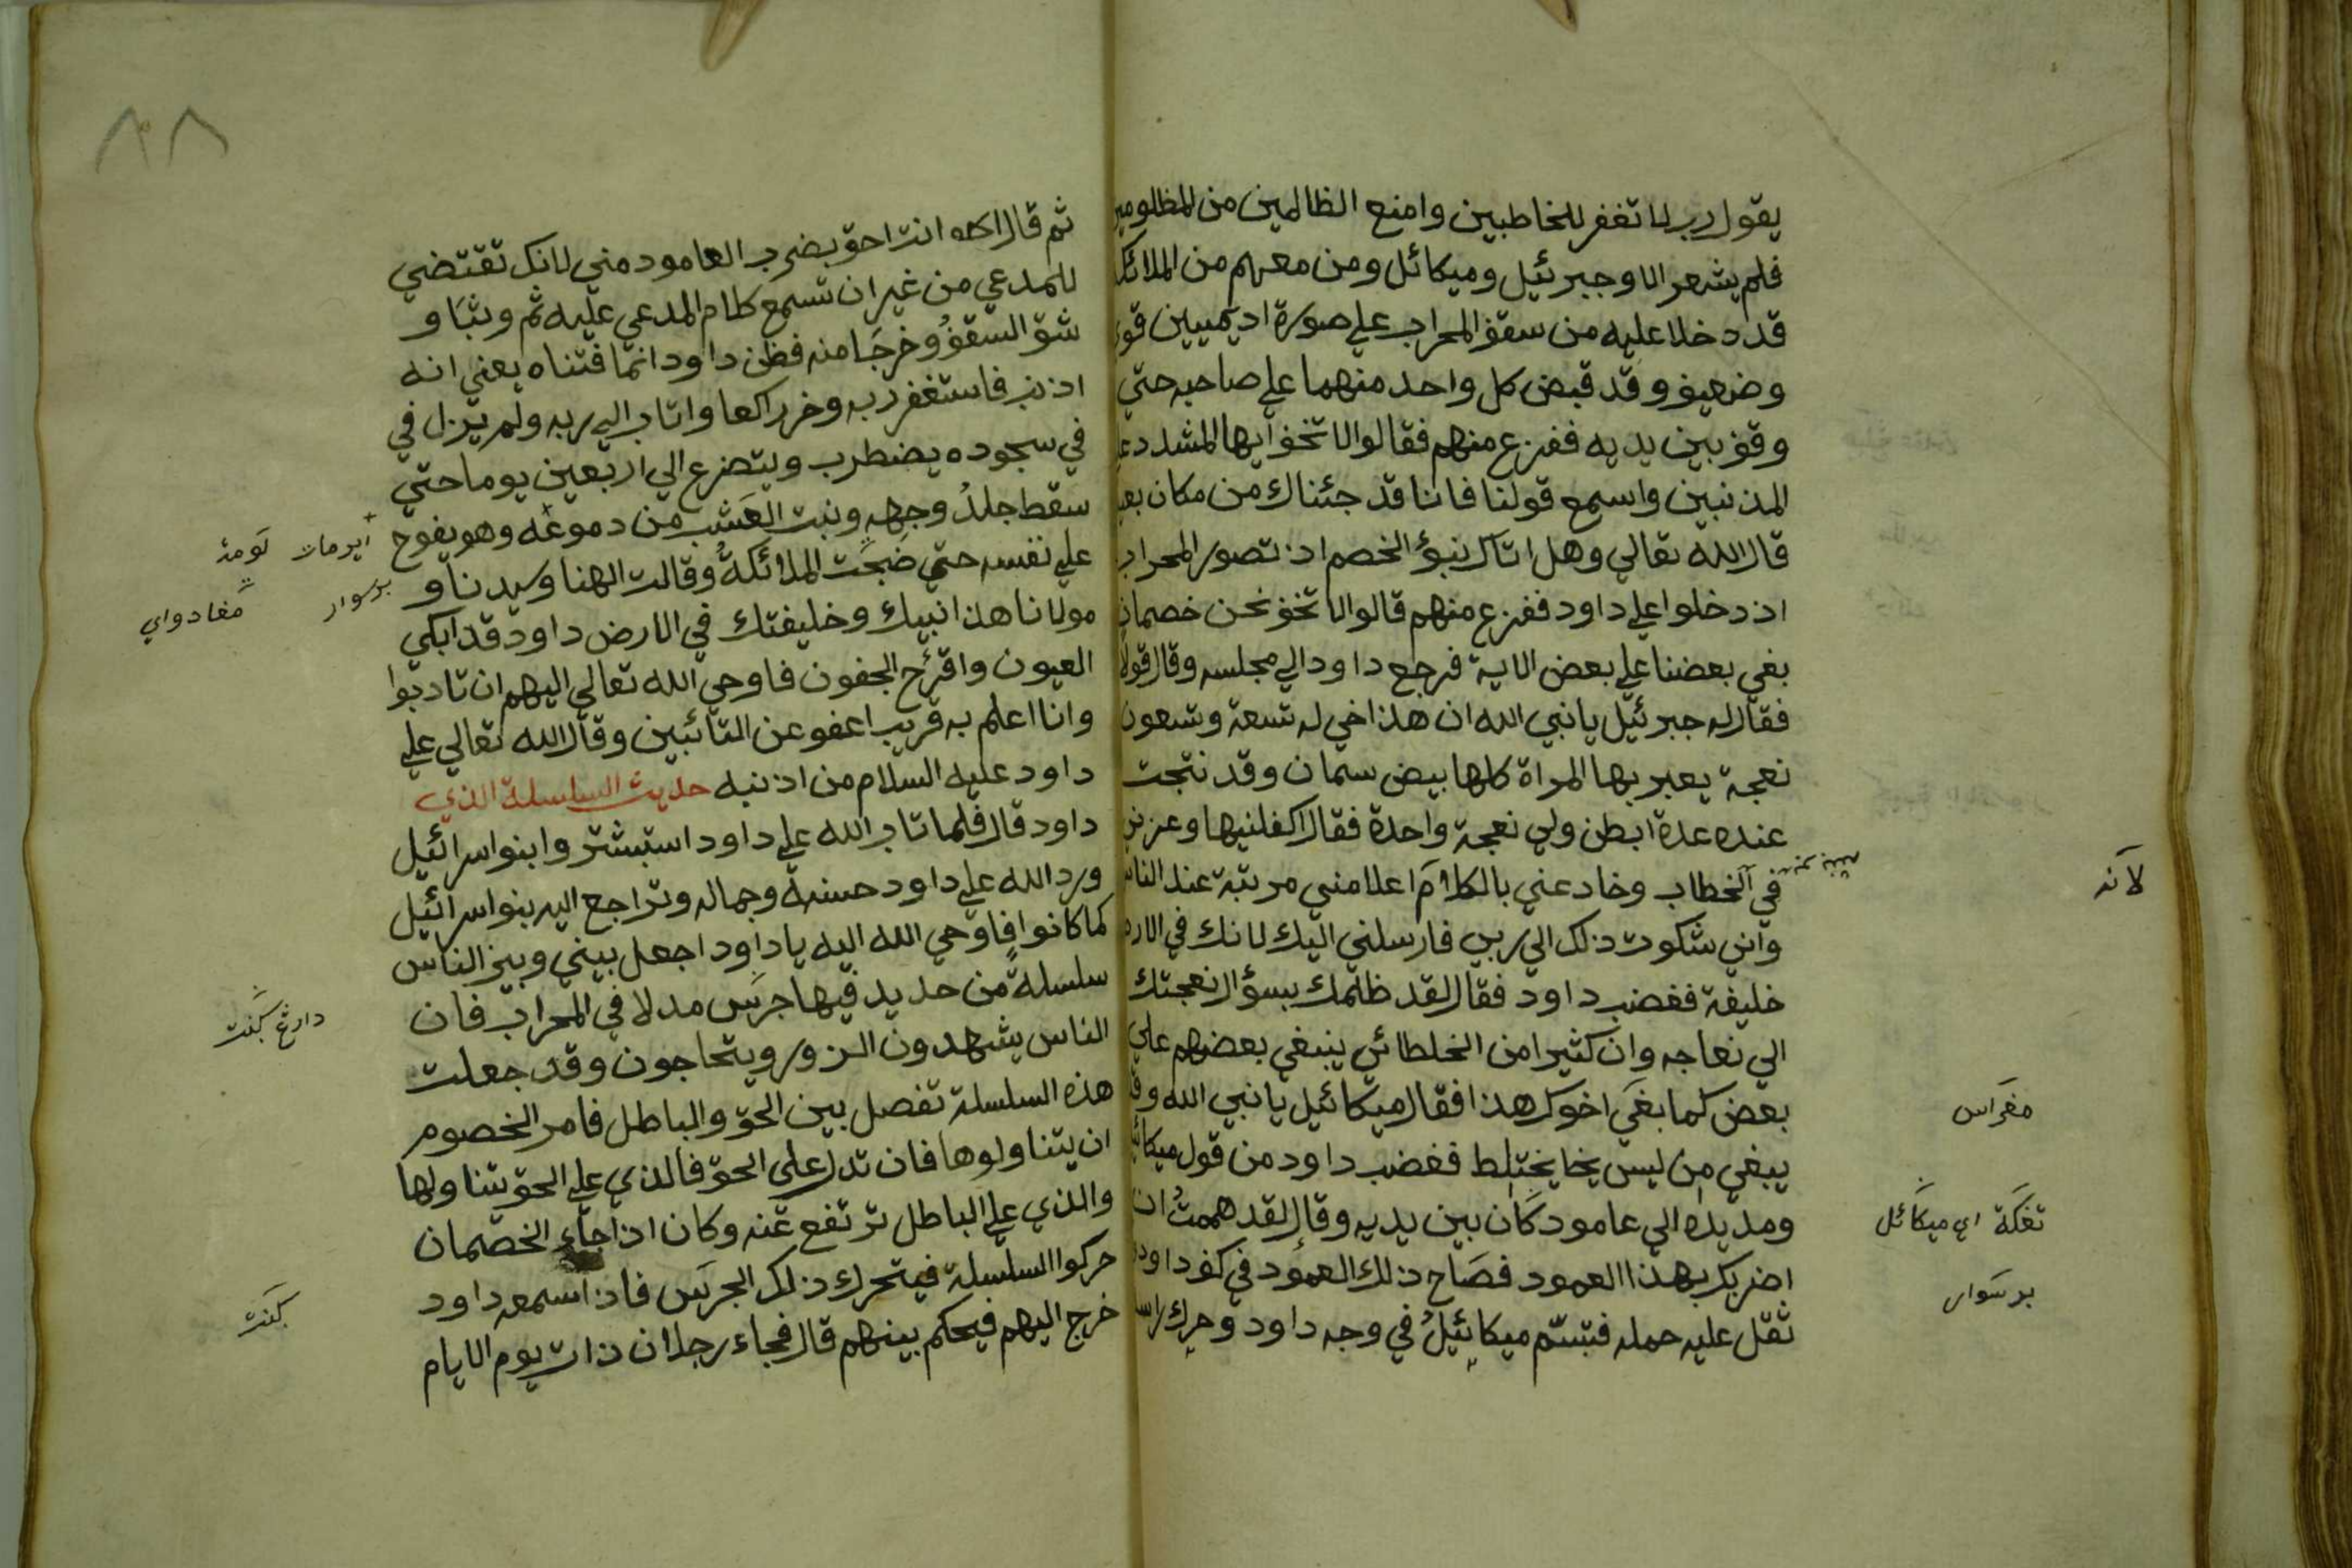 يقول رب لا تغفر للخاطبين وامنع الظالمين من المظلومين
فلم يشعر الا وجبرئيل وميكائل ومن معهم من الملائكة
قد دخلا عليه من سقف المحراب علي صورة اديميين قوي
وضعيف وقد قبض كل واحد منهما علي صاحبه حتي
وقف بين يديه ففزع منهم فقالوا لا تخف ايها المشدد علي
المذنبين واسمع قولنا فاننا قد جئناك من مكان بعيد
قال الله تعالي وهل اتاك نبؤ الخصم اذ تصور المحراب
اذ دخلوا علي داود ففزع منهم قالوا لا تخف نحن خصمان
بغي بعضنا علي بعض الاية فرجع داود الي مجلسه وقال قولا
فقال له جبرئيل يا نبي الله ان هذا اخي له تسعة وتسعون
نعجة يعبر بها المراة كلها بيض سمان وقد نتجت
عنده عدة ابطن ولي نعجة واحدة فقال اكفلنيها وعزني
في الخطاب وخادعني بالكلام اعلا مني مرتبة عند الناس
لأنه
واني شكوت ذلك الي ربي فارسلني اليك لانك في الارض
خليفة فغضب داود فقال لقد ظلمك بسؤال نعجتك
الي نعاجه وان كثيرا من الخلطائي ينبغي بعضهم علي
بعض كما بغي اخوك هذا فقال ميكائيل يا نبي الله وقد
مغراس
يبغي من ليس يخا يختلط فغضب داود من قول ميكائيل
ومد يده الي عامود كان بين يديه وقال لقد هممت ان
تفكة اي ميكائل
اضربك بهذا العمود فصاح ذلك العمود في كف داود
برسوار
ثقل عليه حمله فتبسّم ميكائيل في وجه داود وحرك راسه
٨٨
ثم قال له انت احق بضرب العامود مني لانك تقتضي
للمدعي من غير ان تسمع كلام المدعي عليه ثم وثبا و
شق السقف وخرجا منه فظن داود انما فتناه يعني انه
اذنب فاستغفر ربه وخر راكعا واتاب الي ربه ولم يزل في
في سجوده يضطرب ويتضرع الي اربعين يوما حتي
سقط جلد وجهه ونبت العشب من دموعه وهو يفوح
علي نفسه حتي ضجت الملائكة وقالت الهنا وسيدنا و
برسوار
مغادواي
مولانا هذا نبيك وخليفتك في الارض داود قد ابكي
العيون واقرح الجفون فاوحي الله تعالي اليهم ان تادبوا
وانا اعلم به قريب اعفو عن التائبين وقال الله تعالي علي
داود عليه السلام من اذنبه حديث السلسلة الذي
داود قال فلما تاب الله علي داود استبشر وا بنوا سرائيل
ورد الله علي داود حسنه وجماله وتراجع اليه بنوا سرائيل
كما كانوا فاوحي الله اليه يا داود اجعل بيني وبين الناس
سلسلة من حديد فيها جرس مدلا في المحراب فان
دارڠ كنت
الناس يشهدون الزور ويتحاجون وقد جعلت
هذه السلسلة تفصل بين الحق والباطل فامر الخصوم
ان يتناولوها فان تدل علي الحق فالذي علي الحق تتناولها
والذي علي الباطل ترتفع عنه وكان اذا جاء الخصمان
حركوا السلسلة فيتحرك ذلك الجرس فاذا سمعه داود
كنت
خرج اليهم فيحكم بينهم قال فجاء رجلان ذات يوم الايام